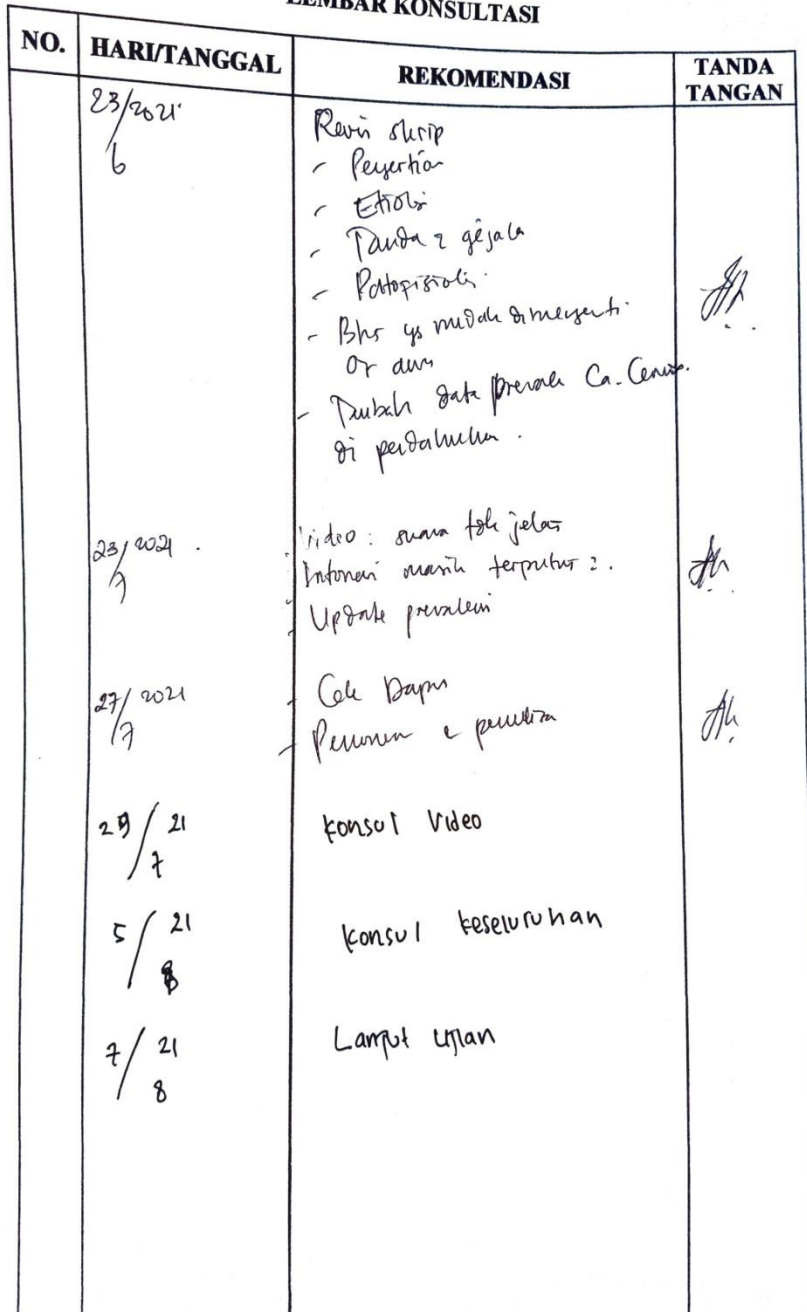 LEMBAR KONSULTASI
NO. HARI/TANGGAL REKOMENDASI TANDA TANGAN
23/2021 6 Revisi skrip
- Pengertian
- Etiologi
- Tanda 2 gejala
- Patofisiologi
- Bhs yg mudah dimengerti
or awam
- Tambah data prevalensi Ca. Cervix
di pendahuluan.
23/2021 7 - Video: suara tdk jelas
Intonasi masih terputus 2.
- Update prevalensi
27/2021 7 - Cek Dapus
-
29/21 7 Konsul Video
5/21 8 Konsul keseluruhan
7/21 8 Lanjut ujian